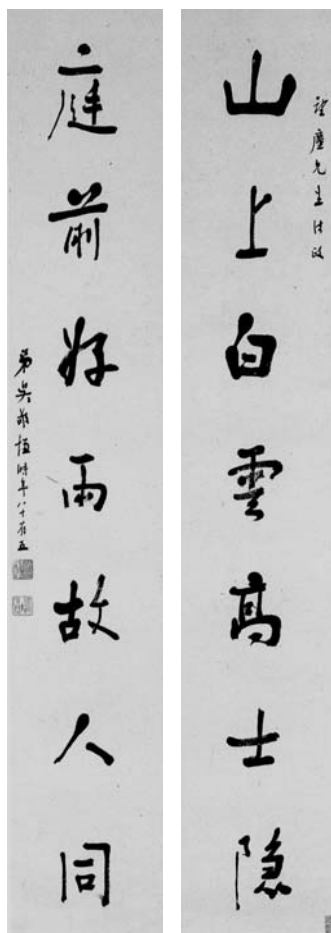 先生法政
山上白雲高士隱
庭前好雨故人同
弟吳敬恆時年八十有五